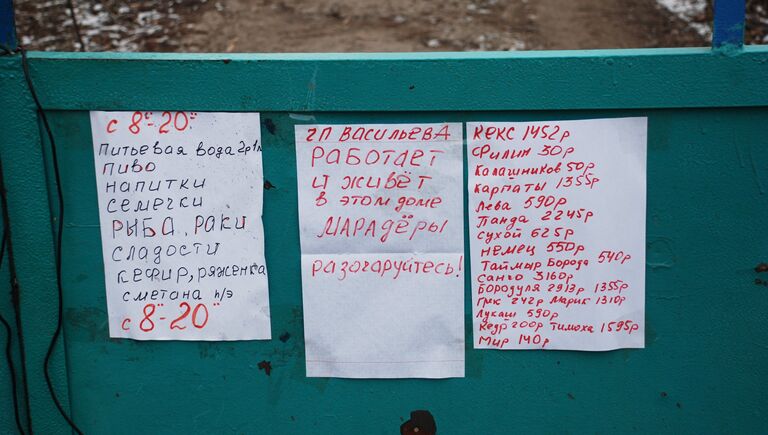 с 8⁰⁰-20⁰⁰
Питьевая вода 2р 1л
пиво
напитки
семечки
РЫБА, РАКИ
сладости
кефир, ряженка
сметана п/э
с 8⁰⁰-20⁰⁰
ЧП ВАСИЛЬЕВА
Работает
и живёт
в этом доме
МАРАДЁРЫ
разочаруйтесь!
КЕКС 1452р
Филин 30р
Калашников 50р
Карпаты 1355р
Лева 590р
Панда 2245р
Сухой 625р
немец 550р
Таймыр Борода 540р
Санчо 3160р
Бородуля 2913р 1355р
Грк 242р Марик 1310р
Лукаш 590р
Кедр 200р Тимоха 1595р
Мир 140р